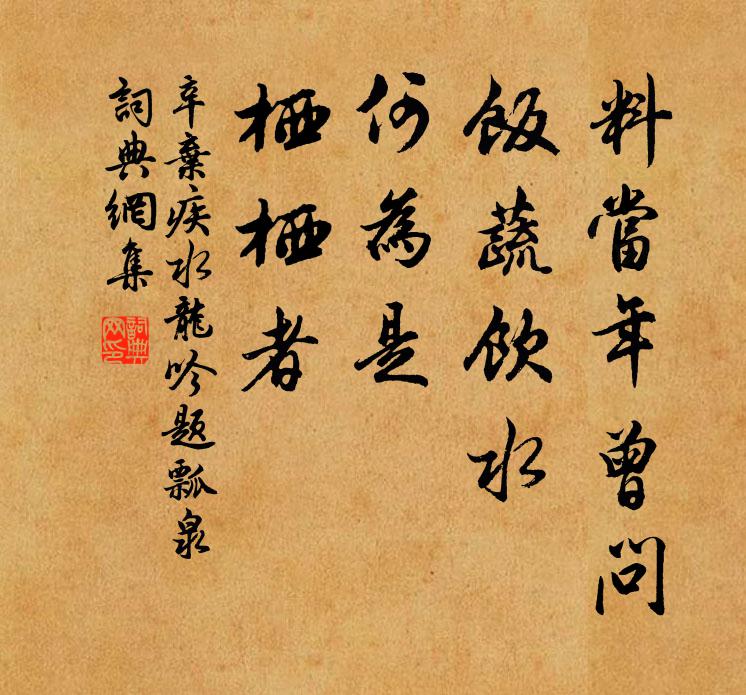 料當年曾問
飯蔬飲水
何為是
栖栖者
辛棄疾水龍吟题瓢泉
詞典網集
詞典网印